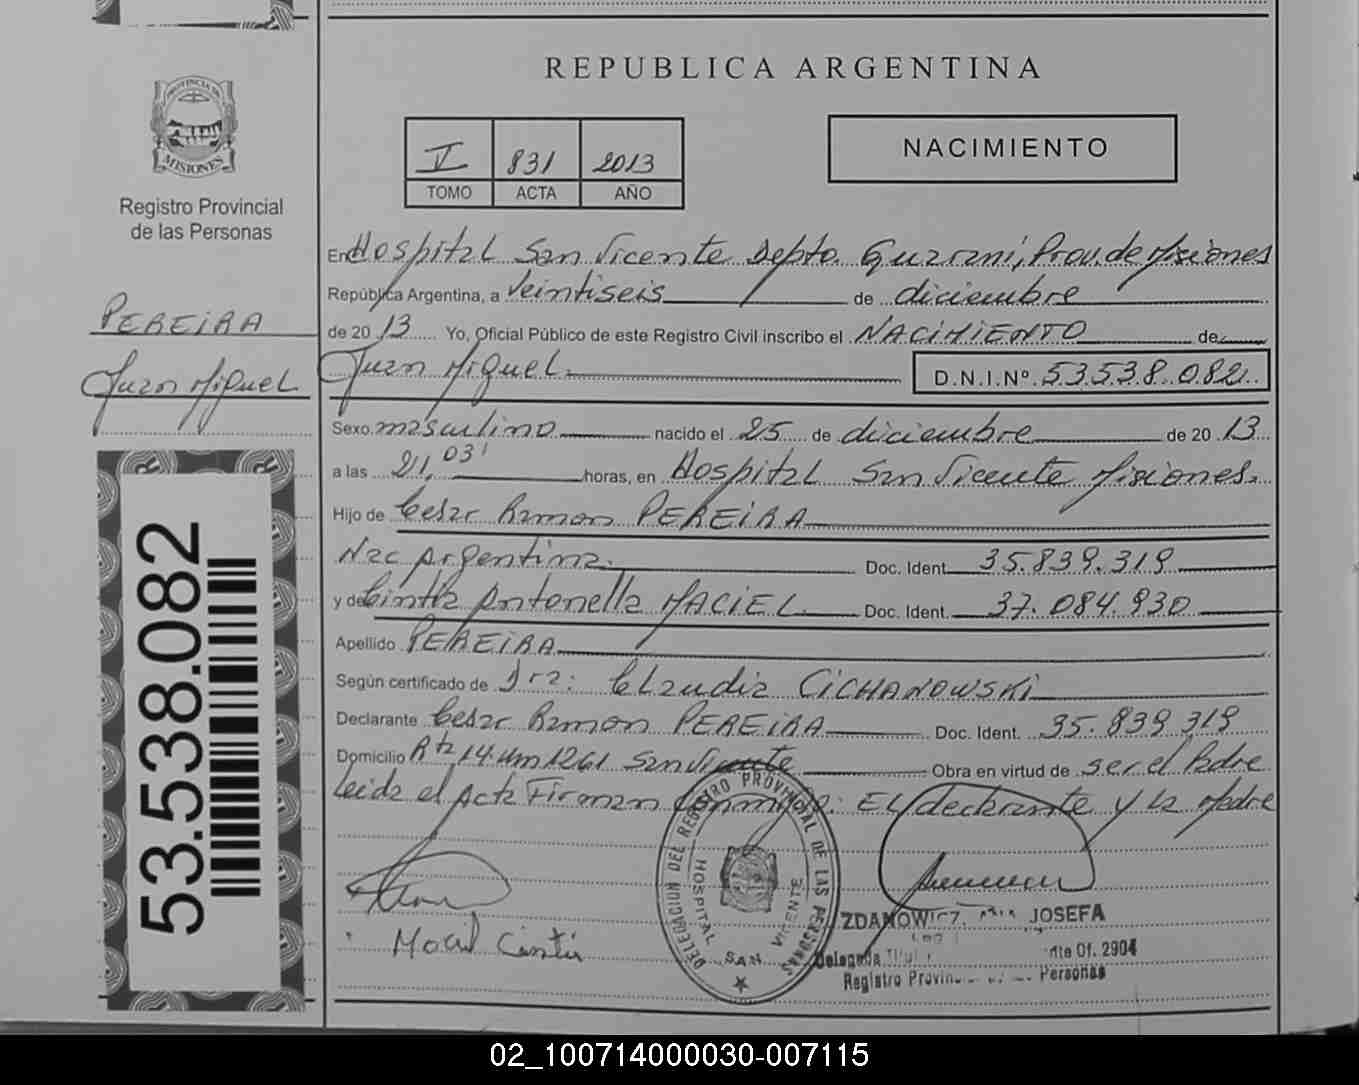 REPUBLICA ARGENTINA
PROVINCIA DE
MISIONES
Registro Provincial
de las Personas
V 831 2013
TOMO ACTA AÑO
NACIMIENTO
En Hospital San Vicente Depto. Guaraní, Prov. de Misiones
República Argentina, a Veintiseis de diciembre
de 20 13 Yo, Oficial Público de este Registro Civil inscribo el NACIMIENTO de
Juan Miguel D.N.I.Nº 53538.082
PEREIRA
Juan Miguel
Sexo masculino nacido el 25 de diciembre de 20 13
a las 21,03' horas, en Hospital San Vicente Misiones.
Hijo de Cesar Ramon PEREIRA
Nac Argentina. Doc. Ident. 35.839.319
y de Cintia Antonella MACIEL Doc. Ident. 37.084.930
Apellido PEREIRA
Según certificado de Dra: Claudia CICHANOWSKI
Declarante Cesar Ramon PEREIRA Doc. Ident. 35.839.319
Domicilio Rta 14 Km 1261 San Vicente Obra en virtud de ser el Padre
Leida el Acta Firman Conmigo: El declarante y la Madre
53.538.082
DELEGACION DEL REGISTRO PROVINCIAL DE LAS PERSONAS
HOSPITAL SAN VICENTE
ZDANOWICZ, JOSEFA
Delegada Of. 2904
Registro Personas
02_100714000030-007115